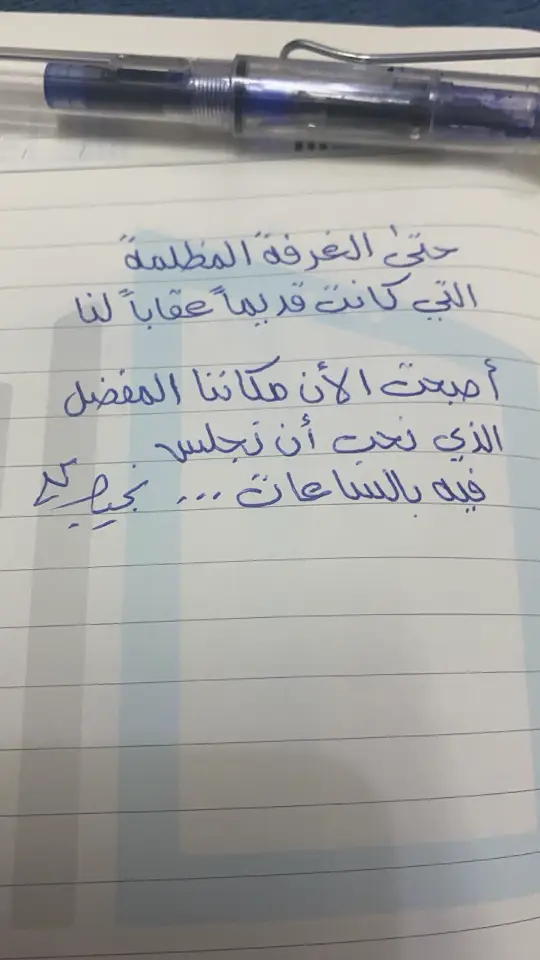 حتىٰ الغرفة المظلمة
التي كانت قديماً عقاباً لنا
أصبحت الأن مكاننا المفضل
الذي نحب أن نجلس
فيه بالساعات ...